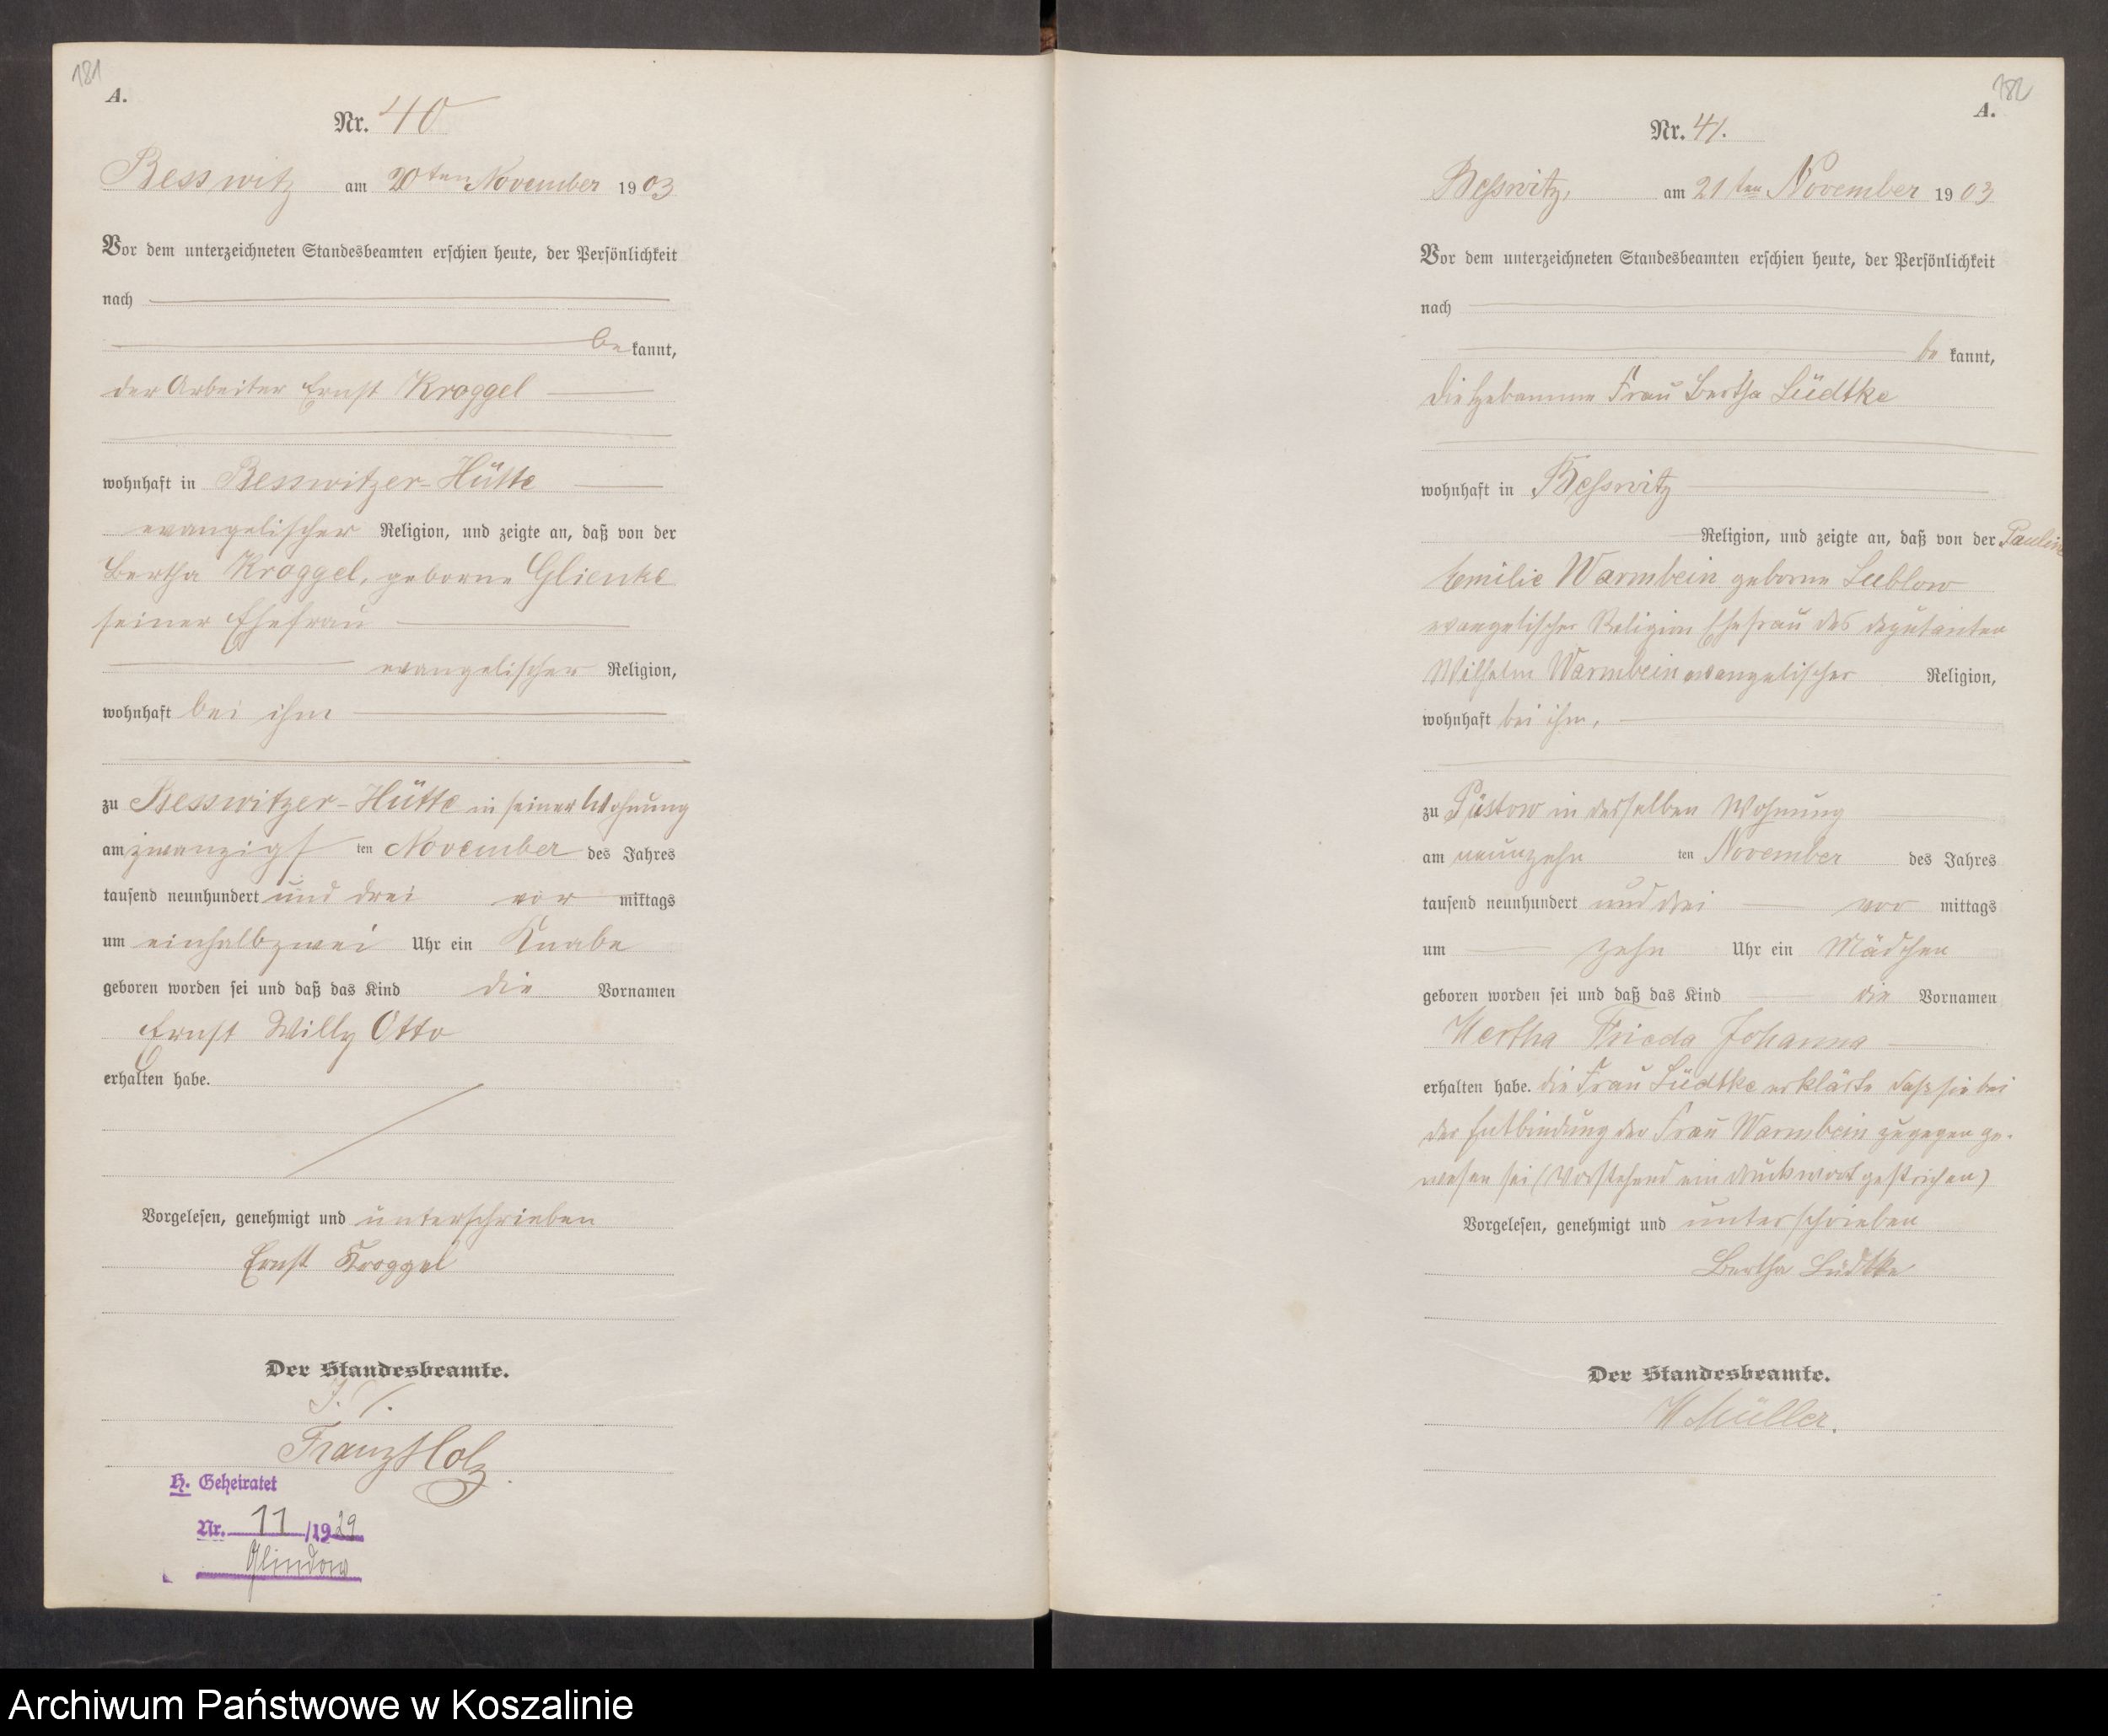 181
A.
Nr. 40
Besswitz am 20ten November 1903
Vor dem unterzeichneten Standesbeamten erschien heute, der Persönlichkeit
nach
be kannt,
der Arbeiter Ernst Kroggel
wohnhaft in Besswitzer-Hütte
evangelischer Religion, und zeigte an, daß von der
Bertha Kroggel, geborne Glienke
seiner Ehefrau
evangelischer Religion,
wohnhaft bei ihm
zu Besswitzer-Hütte in seiner Wohnung
am zwanzigs ten November des Jahres
tausend neunhundert und drei vor mittags
um einhalbzwei Uhr ein Knabe
geboren worden sei und daß das Kind die Vornamen
Ernst Willy Otto
erhalten habe.
Vorgelesen, genehmigt und unterschrieben
Ernst Kroggel
Der Standesbeamte.
J. V.
Franz Holz
H. Geheiratet
Nr. 11 /1929
Glindow
182
A.
Nr. 41.
Beßwitz, am 21ten November 1903
Vor dem unterzeichneten Standesbeamten erschien heute, der Persönlichkeit
nach
be kannt,
die Hebamme Frau Bertha Lüdtke
wohnhaft in Beßwitz
Religion, und zeigte an, daß von der Pauline
Emilie Warmbein geborne Lublow
evangelischer Religion Ehefrau des deputanten
Wilhelm Warmbein evangelischer Religion,
wohnhaft bei ihm,
zu Püstow in desselben Wohnung
am neunzehn ten November des Jahres
tausend neunhundert und drei vor mittags
um zehn Uhr ein Mädchen
geboren worden sei und daß das Kind die Vornamen
Hertha Frieda Johanna
erhalten habe. die Frau Lüdtke erklärte daß sie bei
der Entbindung der Frau Warmbein zugegen ge-
wesen sei (Vorstehend ein druckwort gestrichen)
Vorgelesen, genehmigt und unterschrieben
Bertha Lüdtke
Der Standesbeamte.
H Müller.
Archiwum Państwowe w Koszalinie